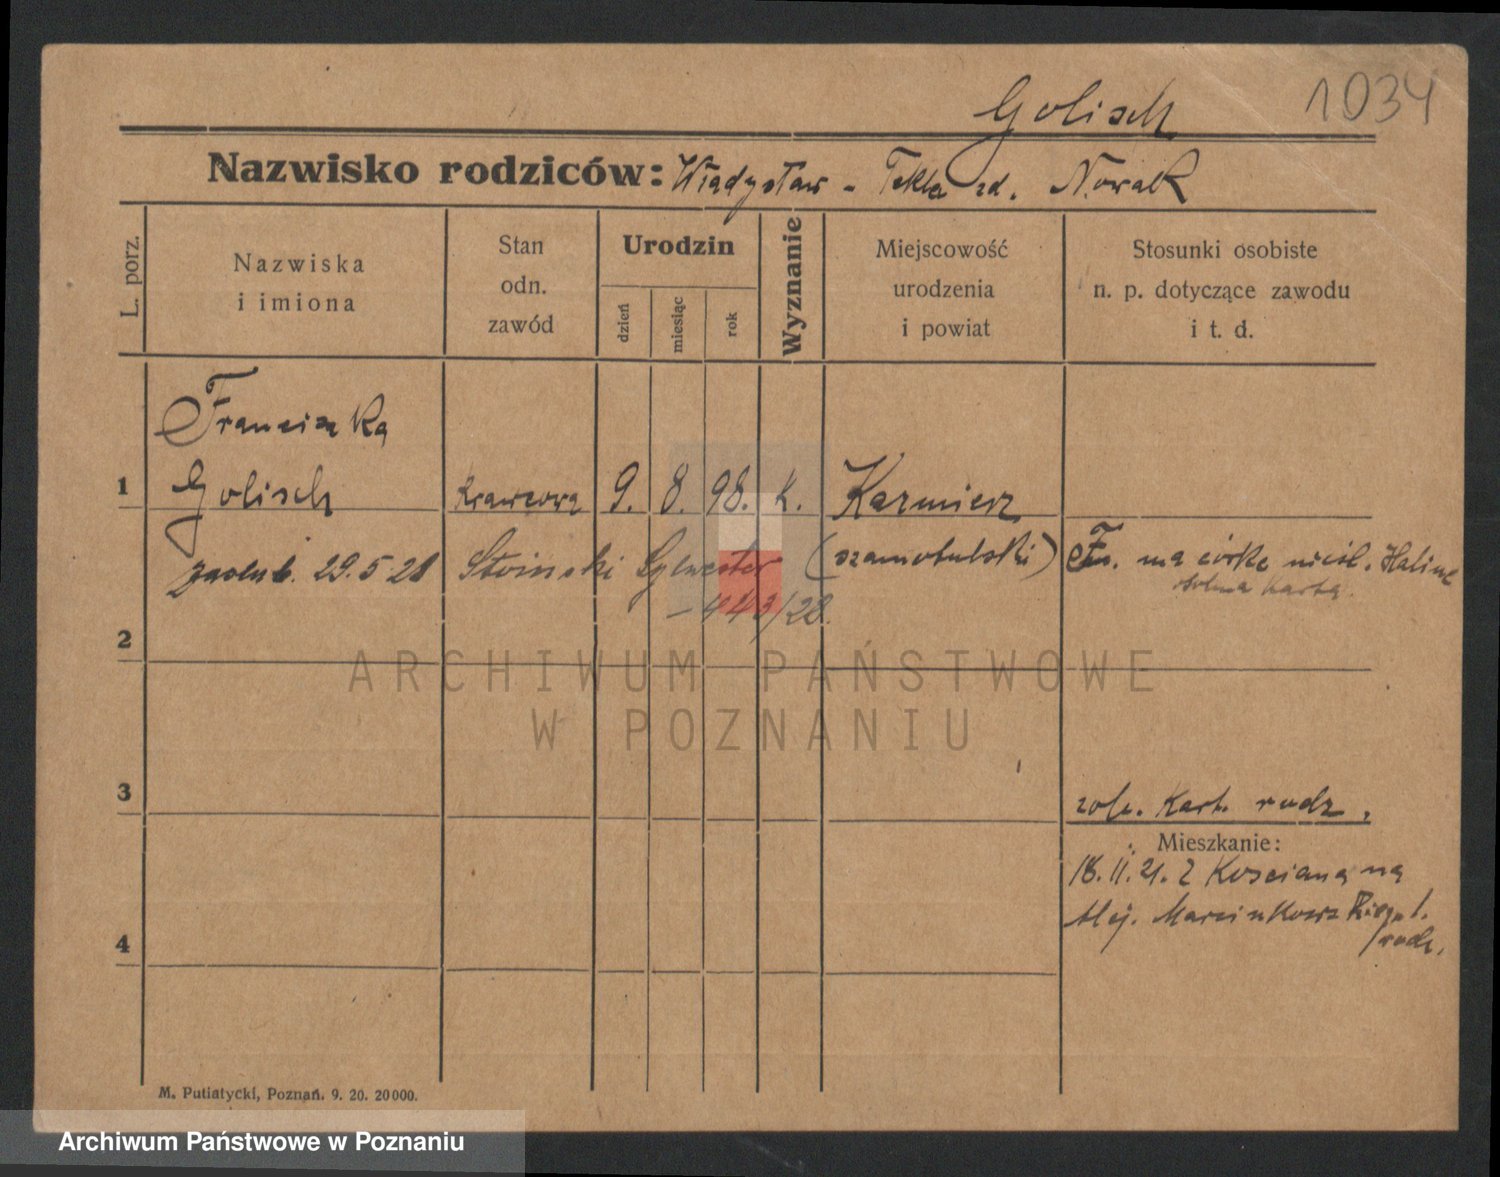 Golisch 1034
Nazwisko rodziców: Władysław - Tekla zd. Nowak
L. porz.
Nazwiska
i imiona
Stan
odn.
zawód
Urodzin
dzień
miesiąc
rok
Wyznanie
Miejscowość
urodzenia
i powiat
Stosunki osobiste
n. p. dotyczące zawodu
i t. d.
Franciszka
1 Golisch krawcowa 9. 8. 98. k. Kazmierz
zaślub. 29.5 28 Stoinski Sylwester (szamotulski) Fr. ma córkę nieśl. Halinę
osobna karta.
- 443/28.
2
ARCHIWUM PAŃSTWOWE
W POZNANIU
3 zob. kart. rodz.
Mieszkanie:
18.II.21. z Kosciana na
Alej. Marcinkowskiego 1.
rodz.
4
M. Putiatycki, Poznań. 9. 20. 20000.
Archiwum Państwowe w Poznaniu